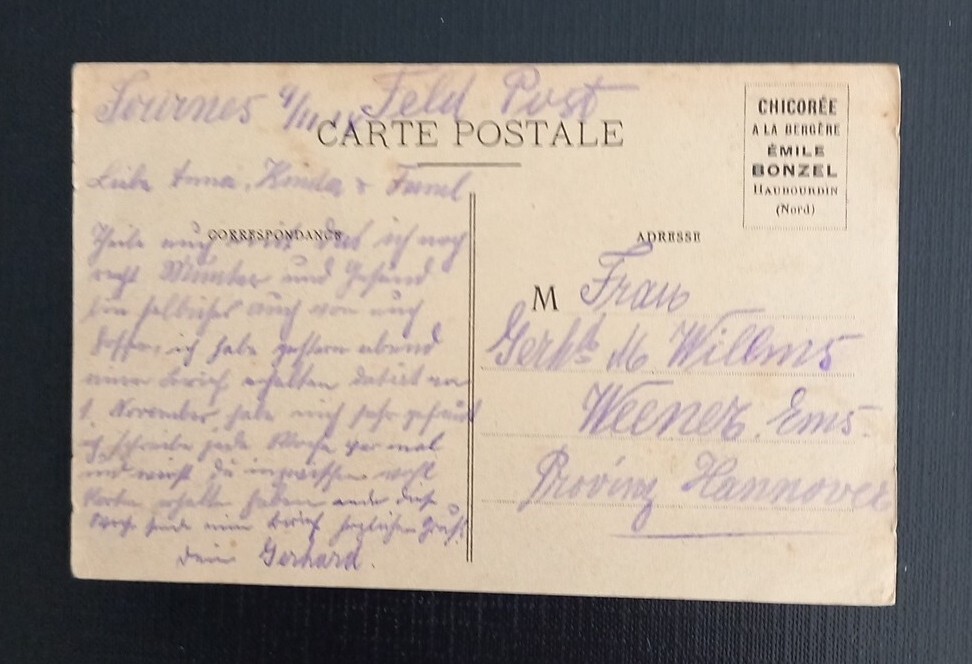 Fournes 9/11 Feld Post
CARTE POSTALE
CHICORÉE
A LA BERGÈRE
ÉMILE
BONZEL
HAUBOURDIN
(Nord)
Liebe Anna, Kinder &
CORRESPONDANCE
Theile euch mit das ich noch
recht Munter und Gesund
bin selbiges auch von euch
hoffe, ich habe gestern abend
einen Brief erhalten datirt vom
1. November, habe mich sehr gefreut
ich schreibe jede Woche par mal
und wirst du inzwischen wohl
Karten erhalten haben ende diese
Woche sende einen Brief herzlichen Gruß!
dein Gerhard.
ADRESSE
M Frau
Gerhd M Willms
Weener. Ems.
Provinz Hannover